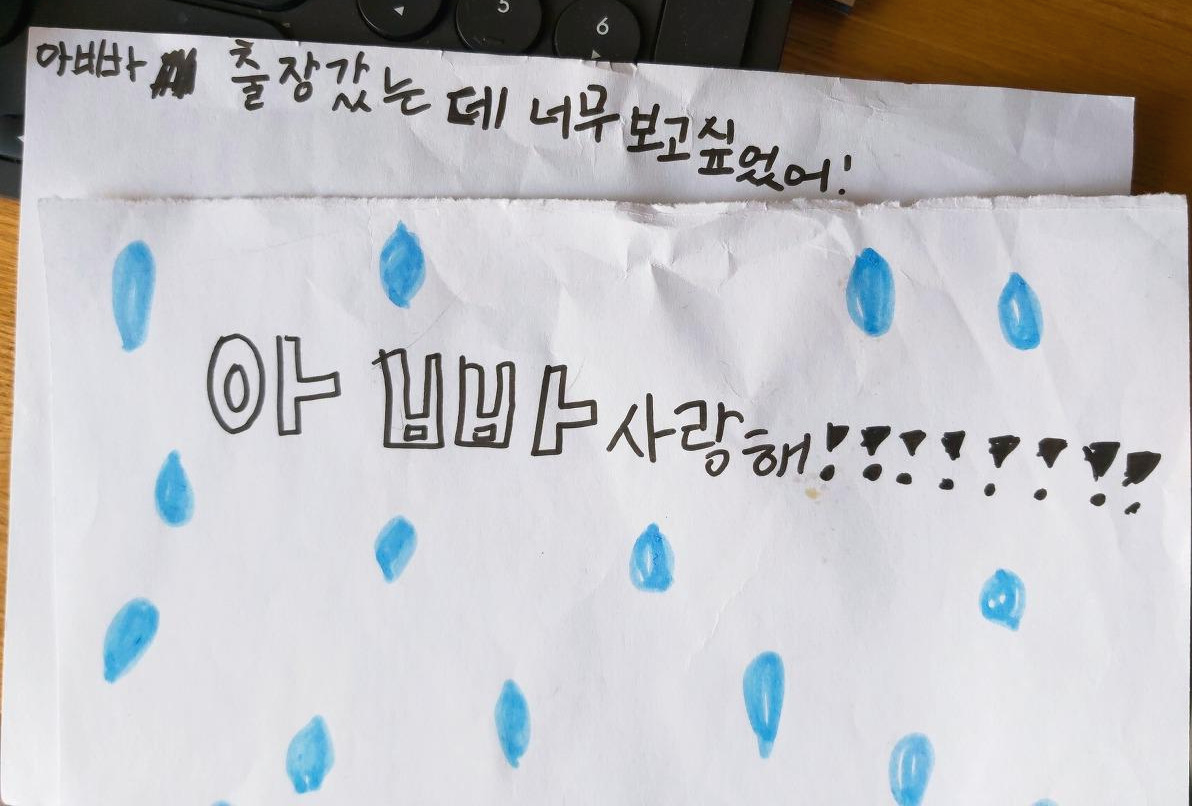 5
6
아빠 출장갔는데 너무 보고싶었어!
아빠 사랑해!!!!!!!!!